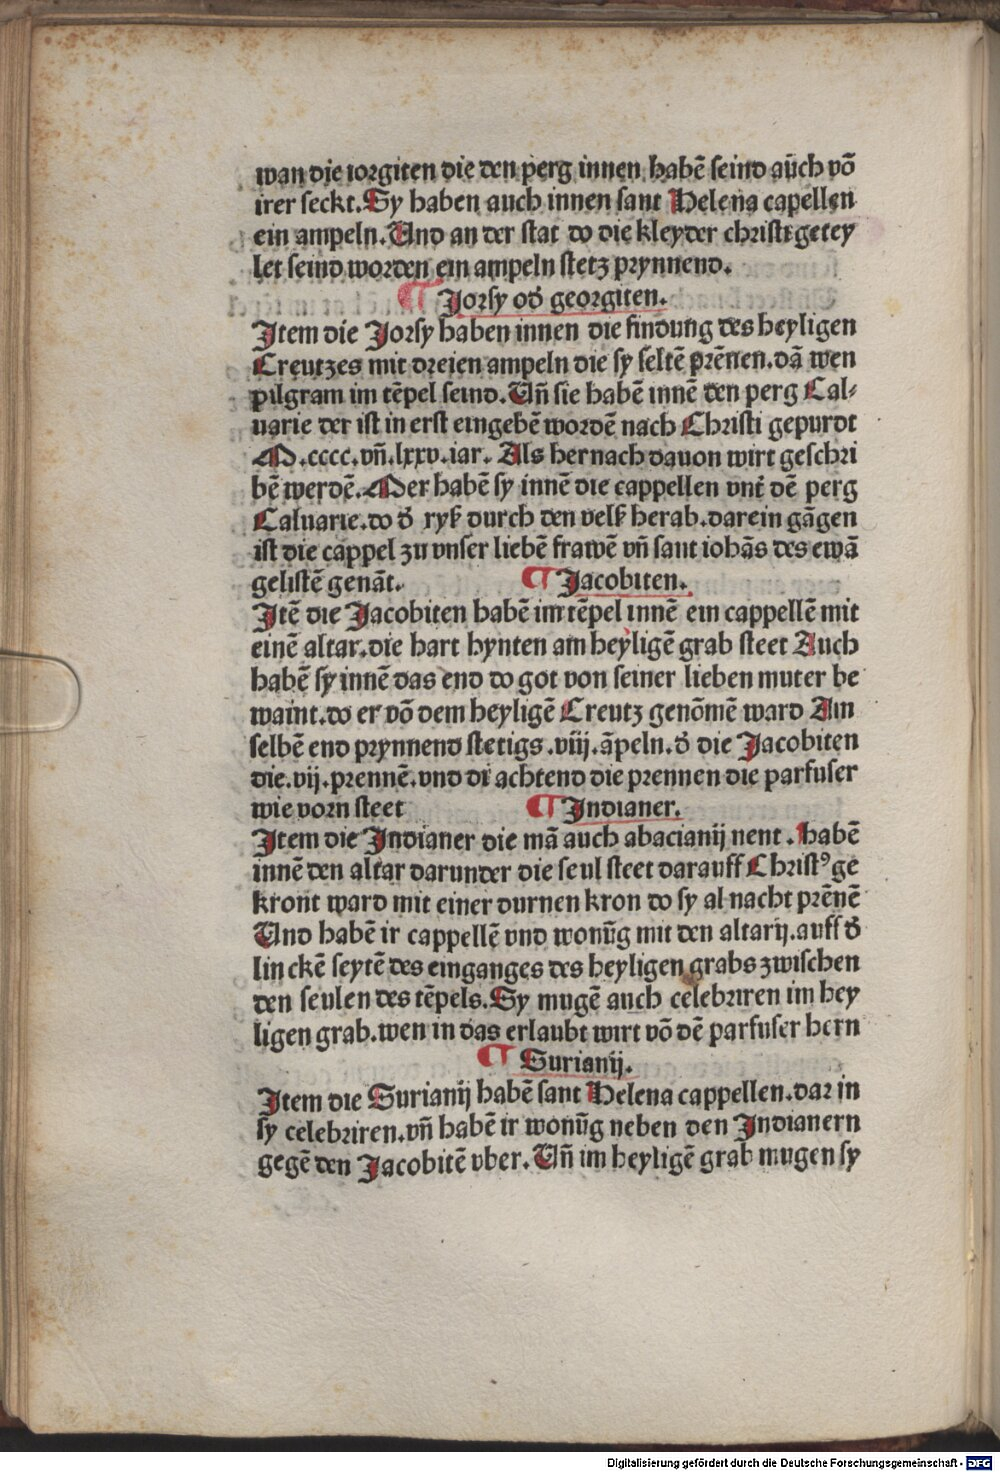 wan die iorgiten die den perg innen habē seind auch vō
irer seckt. Sy haben auch innen sant Helena capellen
ein ampeln. Und an der stat do die kleyder christi getey
let seind worden ein ampeln stetz prynnend.
¶ Jorsy ođ georgiten.
Item die Jorsy haben innen die findung des heyligen
Creutzes mit dreien ampeln die sy seltē prēnen. dā wen
pilgram im tēpel seind. Uñ sie habē innē den perg Cal⸗
uarie der ist in erst eingebē wordē nach Christi gepurdt
M.cccc.vñ.lxxv.iar. Als hernach dauon wirt geschri
bē werdē. Mer habē sy innē die cappellen vnt̄ dē perg
Caluarie. do đ ryß durch den velß herab. darein gāgen
ist die cappel zu vnser liebē frawē vñ sant iohās des ewā
gelistē genāt. ¶ Jacobiten.
Itē die Jacobiten habē im tēpel innē ein cappellē mit
einē altar. die hart hynten am heyligē grab steet Auch
habē sy innē das end do got von seiner lieben muter be
waint. do er vō dem heyligē Creutz genōmē ward Am
selbē end prynnend stetigs .viij. āpeln. đ die Jacobiten
die .vij. prennē. vnd di achtend die prennen die parfuser
wie vorn steet ¶ Indianer.
Item die Indianer die mā auch abacianij nent . habē
innē den altar darunder die seul steet darauff Christꝰ ge
kront ward mit einer durnen kron do sy al nacht prēnē
Und habē ir cappellē vnd wonūg mit den altarij. auff đ
linckē seytē des einganges des heyligen grabs zwischen
den seulen des tēpels. Sy mugē auch celebꝛiren im hey
ligen grab. wen in das erlaubt wirt vō dē parfuser hern
¶ Surianij.
Item die Surianij habē sant Helena cappellen. daꝛ in
sy celebꝛiren. vñ habē ir wonūg neben den Indianern
gegē den Jacobitē vber. Uñ im heyligē grab mugen sy
Digitalisierung gefördert durch die Deutsche Forschungsgemeinschaft - DFG